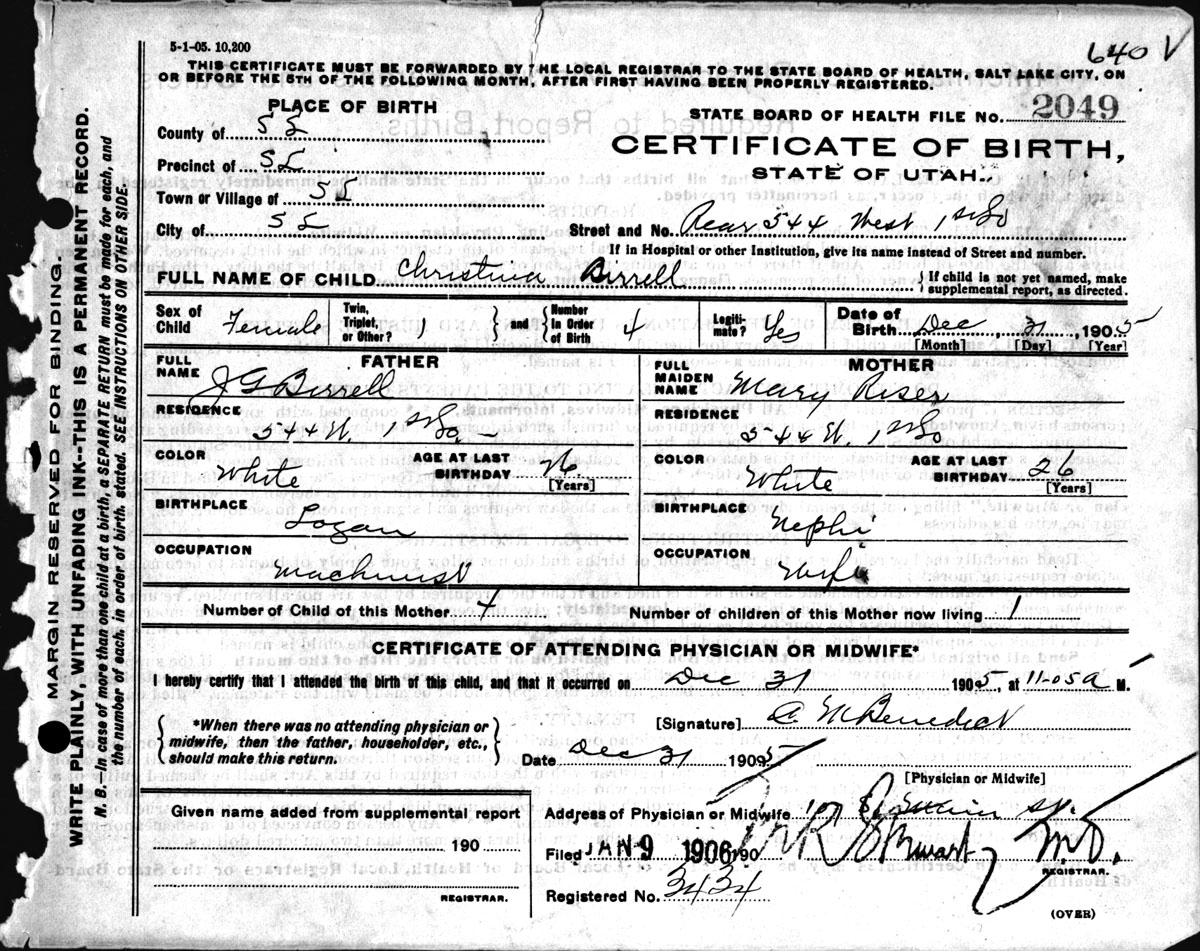 5-1-05. 10,200
640 V
THIS CERTIFICATE MUST BE FORWARDED BY THE LOCAL REGISTRAR TO THE STATE BOARD OF HEALTH, SALT LAKE CITY, ON
OR BEFORE THE 5TH OF THE FOLLOWING MONTH, AFTER FIRST HAVING BEEN PROPERLY REGISTERED.
PLACE OF BIRTH
STATE BOARD OF HEALTH FILE NO. 2049
County of SL
CERTIFICATE OF BIRTH,
Precinct of SL
STATE OF UTAH.
Town or Village of SL
City of SL
Street and No. Rear 544 West 1st So
If in Hospital or other Institution, give its name instead of Street and number.
FULL NAME OF CHILD Christina Birrell
} If child is not yet named, make
supplemental report, as directed.
Sex of Child Female
Twin, Triplet, or Other? 1
{ and } Number In Order of Birth 4
Legiti- mate? Yes
Date of Birth Dec 31 1905
[Month] [Day] [Year]
FATHER
FULL NAME J G Birrell
RESIDENCE
544 W. 1st So.
COLOR White
AGE AT LAST BIRTHDAY 26
[Years]
BIRTHPLACE
Logan
OCCUPATION
Machinist
MOTHER
FULL MAIDEN NAME Mary Riser
RESIDENCE
544 W. 1st So
COLOR White
AGE AT LAST BIRTHDAY 26
[Years]
BIRTHPLACE
Nephi
OCCUPATION
Wife
Number of Child of this Mother 4
Number of children of this Mother now living 1
CERTIFICATE OF ATTENDING PHYSICIAN OR MIDWIFE*
I hereby certify that I attended the birth of this child, and that it occurred on Dec 31 1905, at 11-05 a M.
{ *When there was no attending physician or
midwife, then the father, householder, etc.,
should make this return. }
[Signature] C M Benedict
Date Dec 31 1905
[Physician or Midwife]
Given name added from supplemental report
190
REGISTRAR.
Address of Physician or Midwife
Filed JAN 9 1906 190
Stewart M.D.
REGISTRAR.
Registered No. 3434
(OVER)
MARGIN RESERVED FOR BINDING.
WRITE PLAINLY, WITH UNFADING INK--THIS IS A PERMANENT RECORD.
N. B. In case of more than one child at a birth, a SEPARATE RETURN must be made for each, and
the number of each, in order of birth, stated. SEE INSTRUCTIONS ON OTHER SIDE.